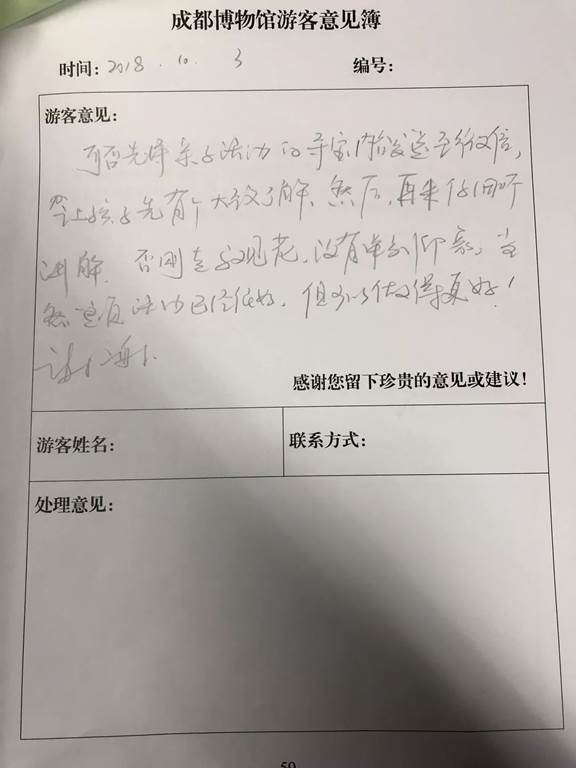 成都博物馆游客意见簿
时间：2018．10．3 编号：
游客意见：
可否先将亲子活动的寻宝内容发送至微信，
让孩子先有个大致了解，然后，再来馆听
讲解．否则走观花，没有印象，当
然这次活动已经很好，但可以做得更好！
谢谢
感谢您留下珍贵的意见或建议！
游客姓名： 联系方式：
处理意见：
59